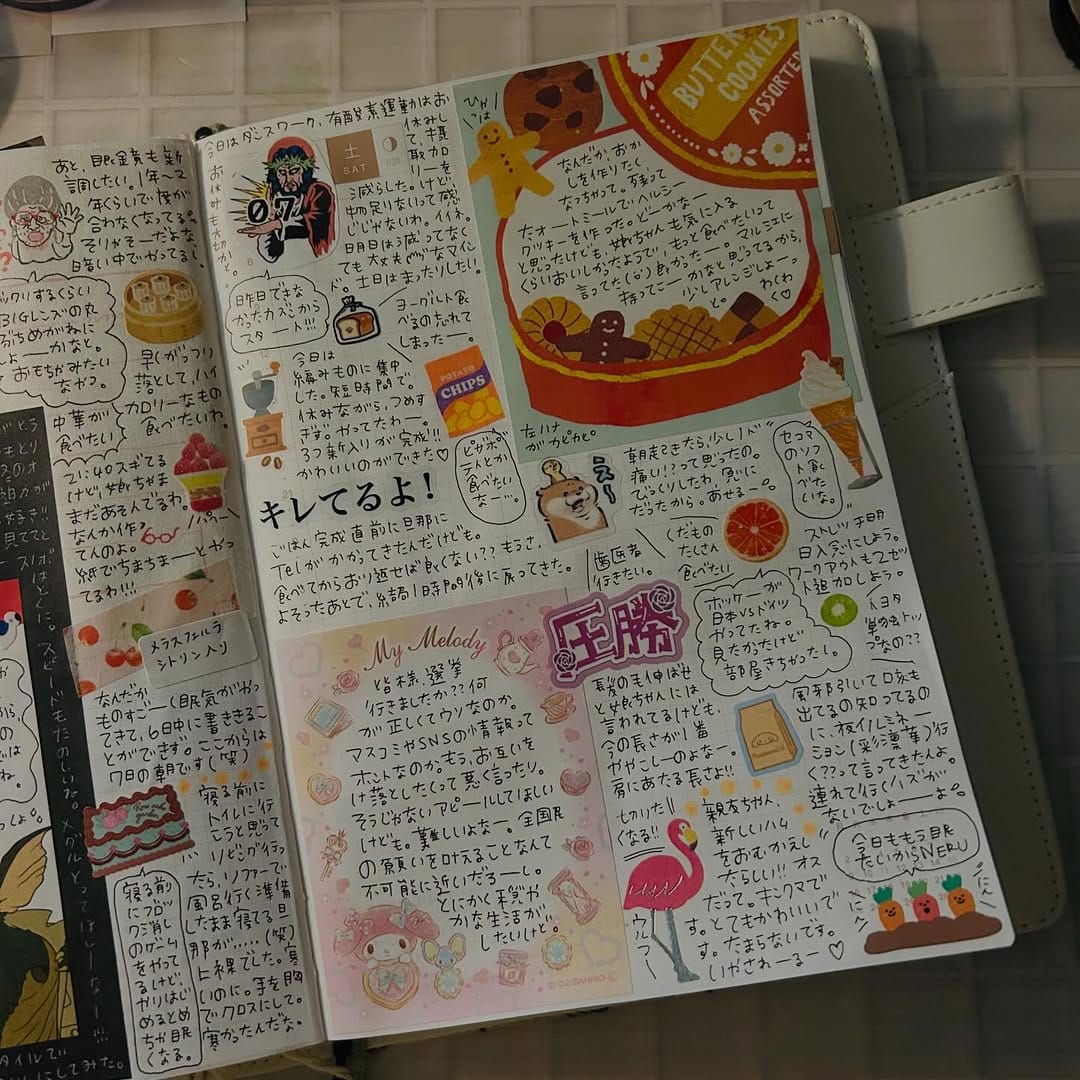 あと、眼鏡も新
調したい。1年〜2
年くらいで度が
合わなくなってる。
そりゃそーだよな
暗い中でやってるし
ックリするくらい
の丸
めがねに
しよーかなと。
おもちゃみたい
なやつ。
早くがっつり
落として、ハイ
カロリーなもの
食べたいわ。
中華が
食べたい
スギてる
けど、娘ちゃま
まだあそんでるわ。
なんか作っ
てんのよ。
紙でちまちまーーとやっ
てるわ!!!
メラスフェルラ
シトリン入り
なんだか
ものすごーく眠気がやっ
てきて、6日中に書ききるこ
とができず。ここからは
7日の朝です(笑)
寝る前に
トイレに行
こうと思って
リビング行っ
たら、ソファーで
風呂行く準備
したまま寝てる旦
那が……(笑)
上裸でした。寒
いのに。手を胸
でクロスにして。
寒かったんだな。
寝る前
にブロッ
ク消し
のゲーム
をやって
るけど、
やりはじ
めるとめ
ちゃ眠
くなる。
今日はダンスワーク、有酸素運動はお
休みし
て、摂
取カロ
リーを
減らした。けど、
物足りないって感
じじゃないわ。イイネ。
明日は減ってなく
ても大丈夫なマイン
ド。土日はまったりしたい。
お休みも大切かと。
土
SAT
07
昨日できな
かったカスミから
スタート!!!
ヨーグルト食
べるの忘れて
しまったー。
今日は
編みものに集中
した。短時間で。
休みながら、つめす
ぎず。やってたわー。
3つ新入りが完成!!
かわいいのができた♡
POTATO
CHIPS
ピザポ
テトとか
食べたい
なー…。
キレてるよ!
ごはん完成直前に旦那に
Telがかかってきたんだけども。
食べてからおり返せば良くない??もうさ、
よそったあとで、結局1時間後に戻ってきた。
My Melody
皆様、選挙
行きましたか??何
が正しくてウソなのか。
マスコミやSNSの情報って
ホントなのか。もう、お互いを
け落としたくって悪く言ったり。
そうじゃないアピールしてほしい
けども。難しいよなー。全国民
の願いを叶えることなんて
不可能に近いだろーし。
とにかく穏や
かな生活が
したいけど。
©'22 SANRIO
BUTTER
COOKIES
ASSORTED
なんだか、おか
しを作りたく
なっちゃって。残って
たオートミールでヘルシー
クッキーを作った。どーかな
と思ったけども、娘ちゃんも気に入る
くらいおいしかったようで、もっと食べたいって
言ってた(笑)良かったー。マルシェに
持ってこーかなと思ってるから、
少しアレンジしよーっ
と。わくわ
く♡
左ハナ
がカピカピ。
え〜
朝走ってきたら、少しノド
痛い!?って思ったの。
びっくりしたわ、急に
だったから。あせるー。
セコマ
のソフ
ト食
べた
いな。
歯医者
行きたい。
くだもの
たくさん
食べたい
ストレッチは明
日入念にしよう。
ワークアウトも2セッ
ト追加しよう。
圧勝
ホッケーが
日本VSドイツ
やってたね。
見たかったけど
部屋きちゃったし。
長髪の毛伸ばせ
と娘ちゃんには
言われてるけども、
今の長さが1番
ややこしーのよなー。
肩にあたる長さよ!!
切りたく
なる!!
親友ちゃん、
新しいハム
をおむかえし
たらしい!!オス
だって。キンクマで
す。とてもかわいいで
す。たまらないです。
いやされーるー♡
風邪引いて口唇も
出てるの知ってるの
に、夜イルミネー
ション(彩凛華)行
く??って言ってきたんよ。
連れて行くハズが
ないでしょーーよー。
今日ももう眠
たいからNERU